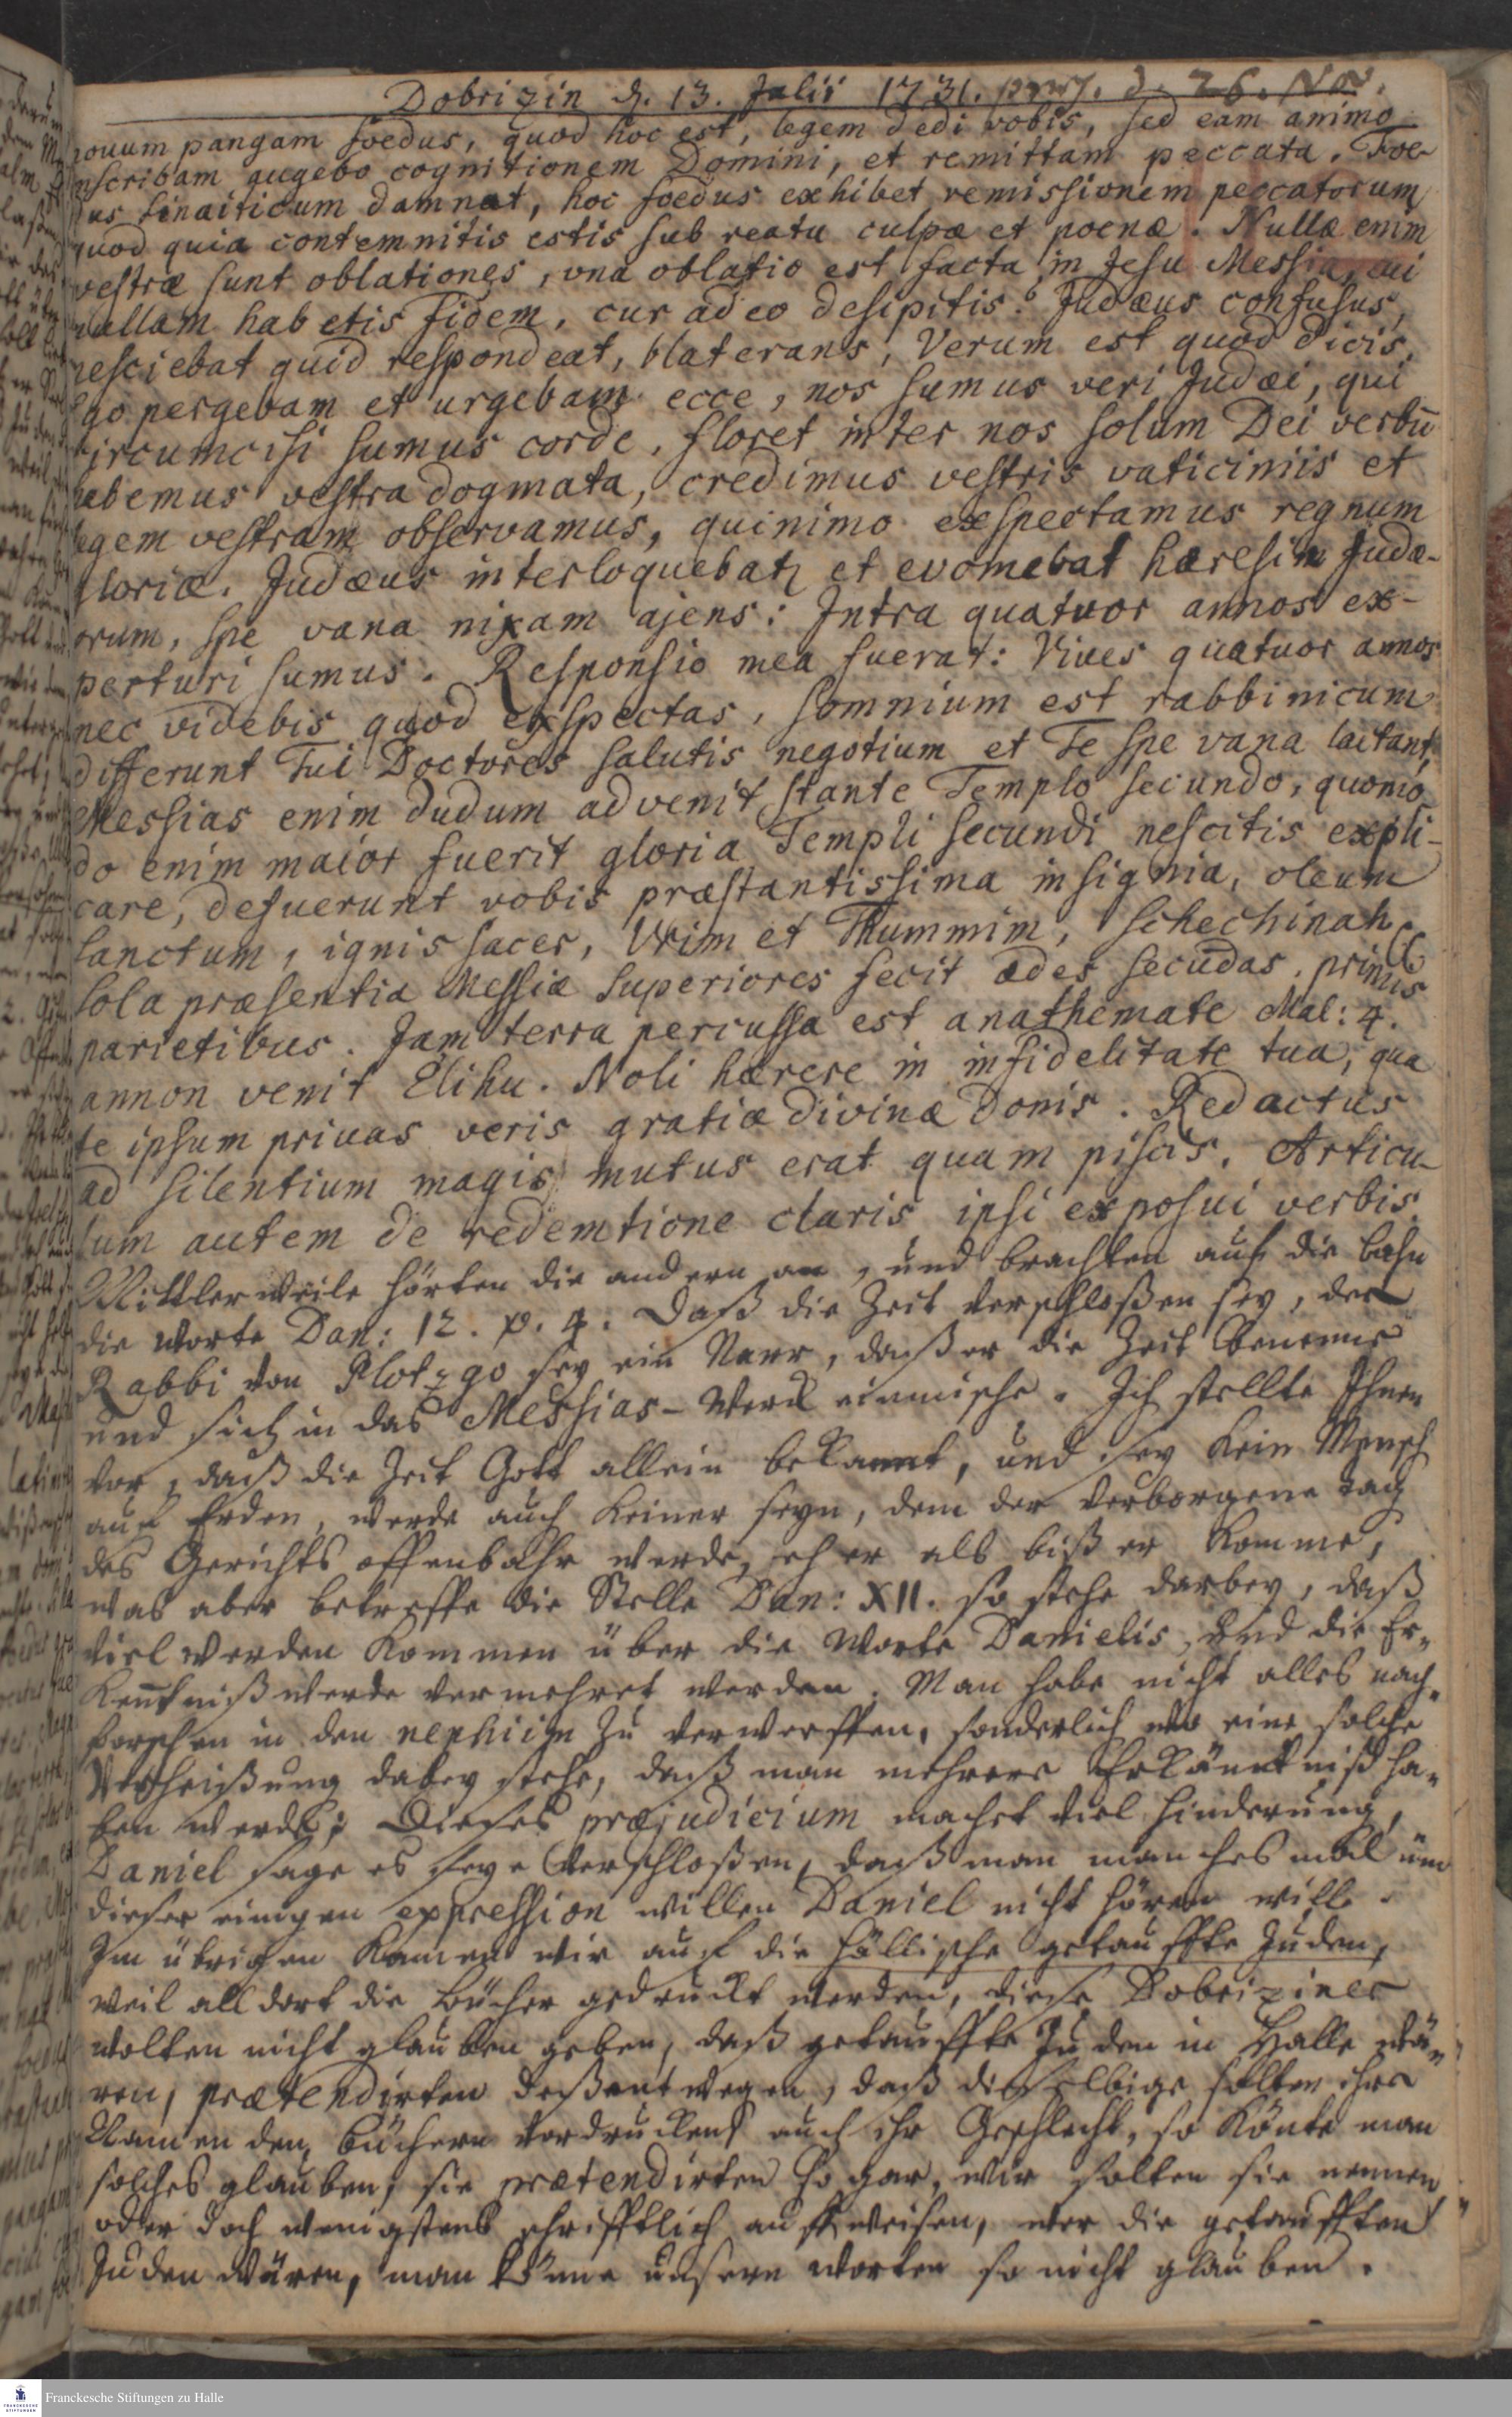 Dobrizin d. 13. Julii 1731. d. 26. Nov.
nouum pangam foedus, quod hoc est, legem dedi vobis, sed eam animo
inscribam augebo cognitionem Domini, et remittam peccata. Foe-
dus Sinaiticum damnat, hoc foedus exhibet remissionem peccatorum
quod quia contemnitis estis sub reatu culpæ et poenæ. Nullæ enim
vestræ sunt oblationes, vna oblatio est facta in Jesu Messia, cui
nullam habetis fidem, cur adeo desipitis? Judæus confusus,
nesciebat quid respondeat, blaterans, Verum est quod dicis.
Ego pergebam et urgebam ecce, nos sumus veri Judæi, qui
circumcisi sumus corde, floret inter nos solum Dei verbū
habemus vestra dogmata, credimus vestris vaticiniis et
legem vestram observamus, quinimo exspectamus regnum
gloriæ. Judæus interloquebatr et evomebat hæresin Judæ-
orum, spe vana nixam ajens: Intra quatuor annos ex-
perturi sumus. Responsio mea fuerat: Vives quatuor annos
nec videbis quod exspectas, somnium est rabbinicum
differunt Tui Doctores salutis negotium et Te spe vana lactant,
Messias enim dudum advenit stante Templo secundo, quomo
do enim maior fuerit gloria Templi secundi nescitis expli-
care, defuerunt vobis præstantissima insignia, oleum
sanctum, ignis sacer, Vrim et Thummim, Schechinah
sola præsentia Messiæ superiores fecit ædes secūdas primis
parietibus. Jam terra percussa est anathemate Mal: 4.
annon venit Elihu. Noli hærere in infidelitate tua, qua
te ipsum priuas veris gratiæ divinæ donis. Redactus
ad silentium magis mutus erat quam piscis. Articu-
lum autem de redemtione claris ipsi exposui verbis.
Mittlerweile hörten die andern an, und brachten auf die bahn
die Worte Dan: 12. v. 4. Daß die Zeit verschloßen sey, der
Rabbi von Plotzgo sey ein Narr, daß er die Zeit benenne
und sich in das Messias-Werck einmische. Ich stellte Ihnen
vor, daß die Zeit Gott allein bekannt, und sey kein Mensch
auf Erden, werde auch keiner seyn, dem der verborgene tag
des Gerichts offenbahr werde, eher als biß er komme,
was aber betreffe die Stelle Dan: XII. so stehe darbey, daß
viel werden kommen über die Worte Danielis, und die Er-
kentniß werde vermehret werden. Man habe nicht alles nach-
forschen in den nephiim zu verwerffen, sonderlich wo eine solche
Verheißung dabey stehe, daß man mehrere Erkänntniß ha-
ben werde; Dieses præjudicium machet viel hinderung,
Daniel sage es seye verschloßen, daß man manches mal um
dieser einigen expression willen Daniel nicht hören will.
Im übrigen kamen wir auf die hällische getauffte Juden,
weil alldort die bücher gedruckt werden, diese Dobriziner
wolten nicht glauben geben, daß getauffte Juden in Halle wä-
ren, prætendirten deßentwegen, daß dieselbige solten ihre
Namen den büchern vordrucken auch ihr Geschlecht, so könte man
solches glauben, sie prætendirten so gar, wir solten sie nennen
oder doch wenigstens schrifftlich auffweisen, wer die getaufften
Juden wären, man könne unsern worten so nicht glauben.
Franckesche Stiftungen zu Halle